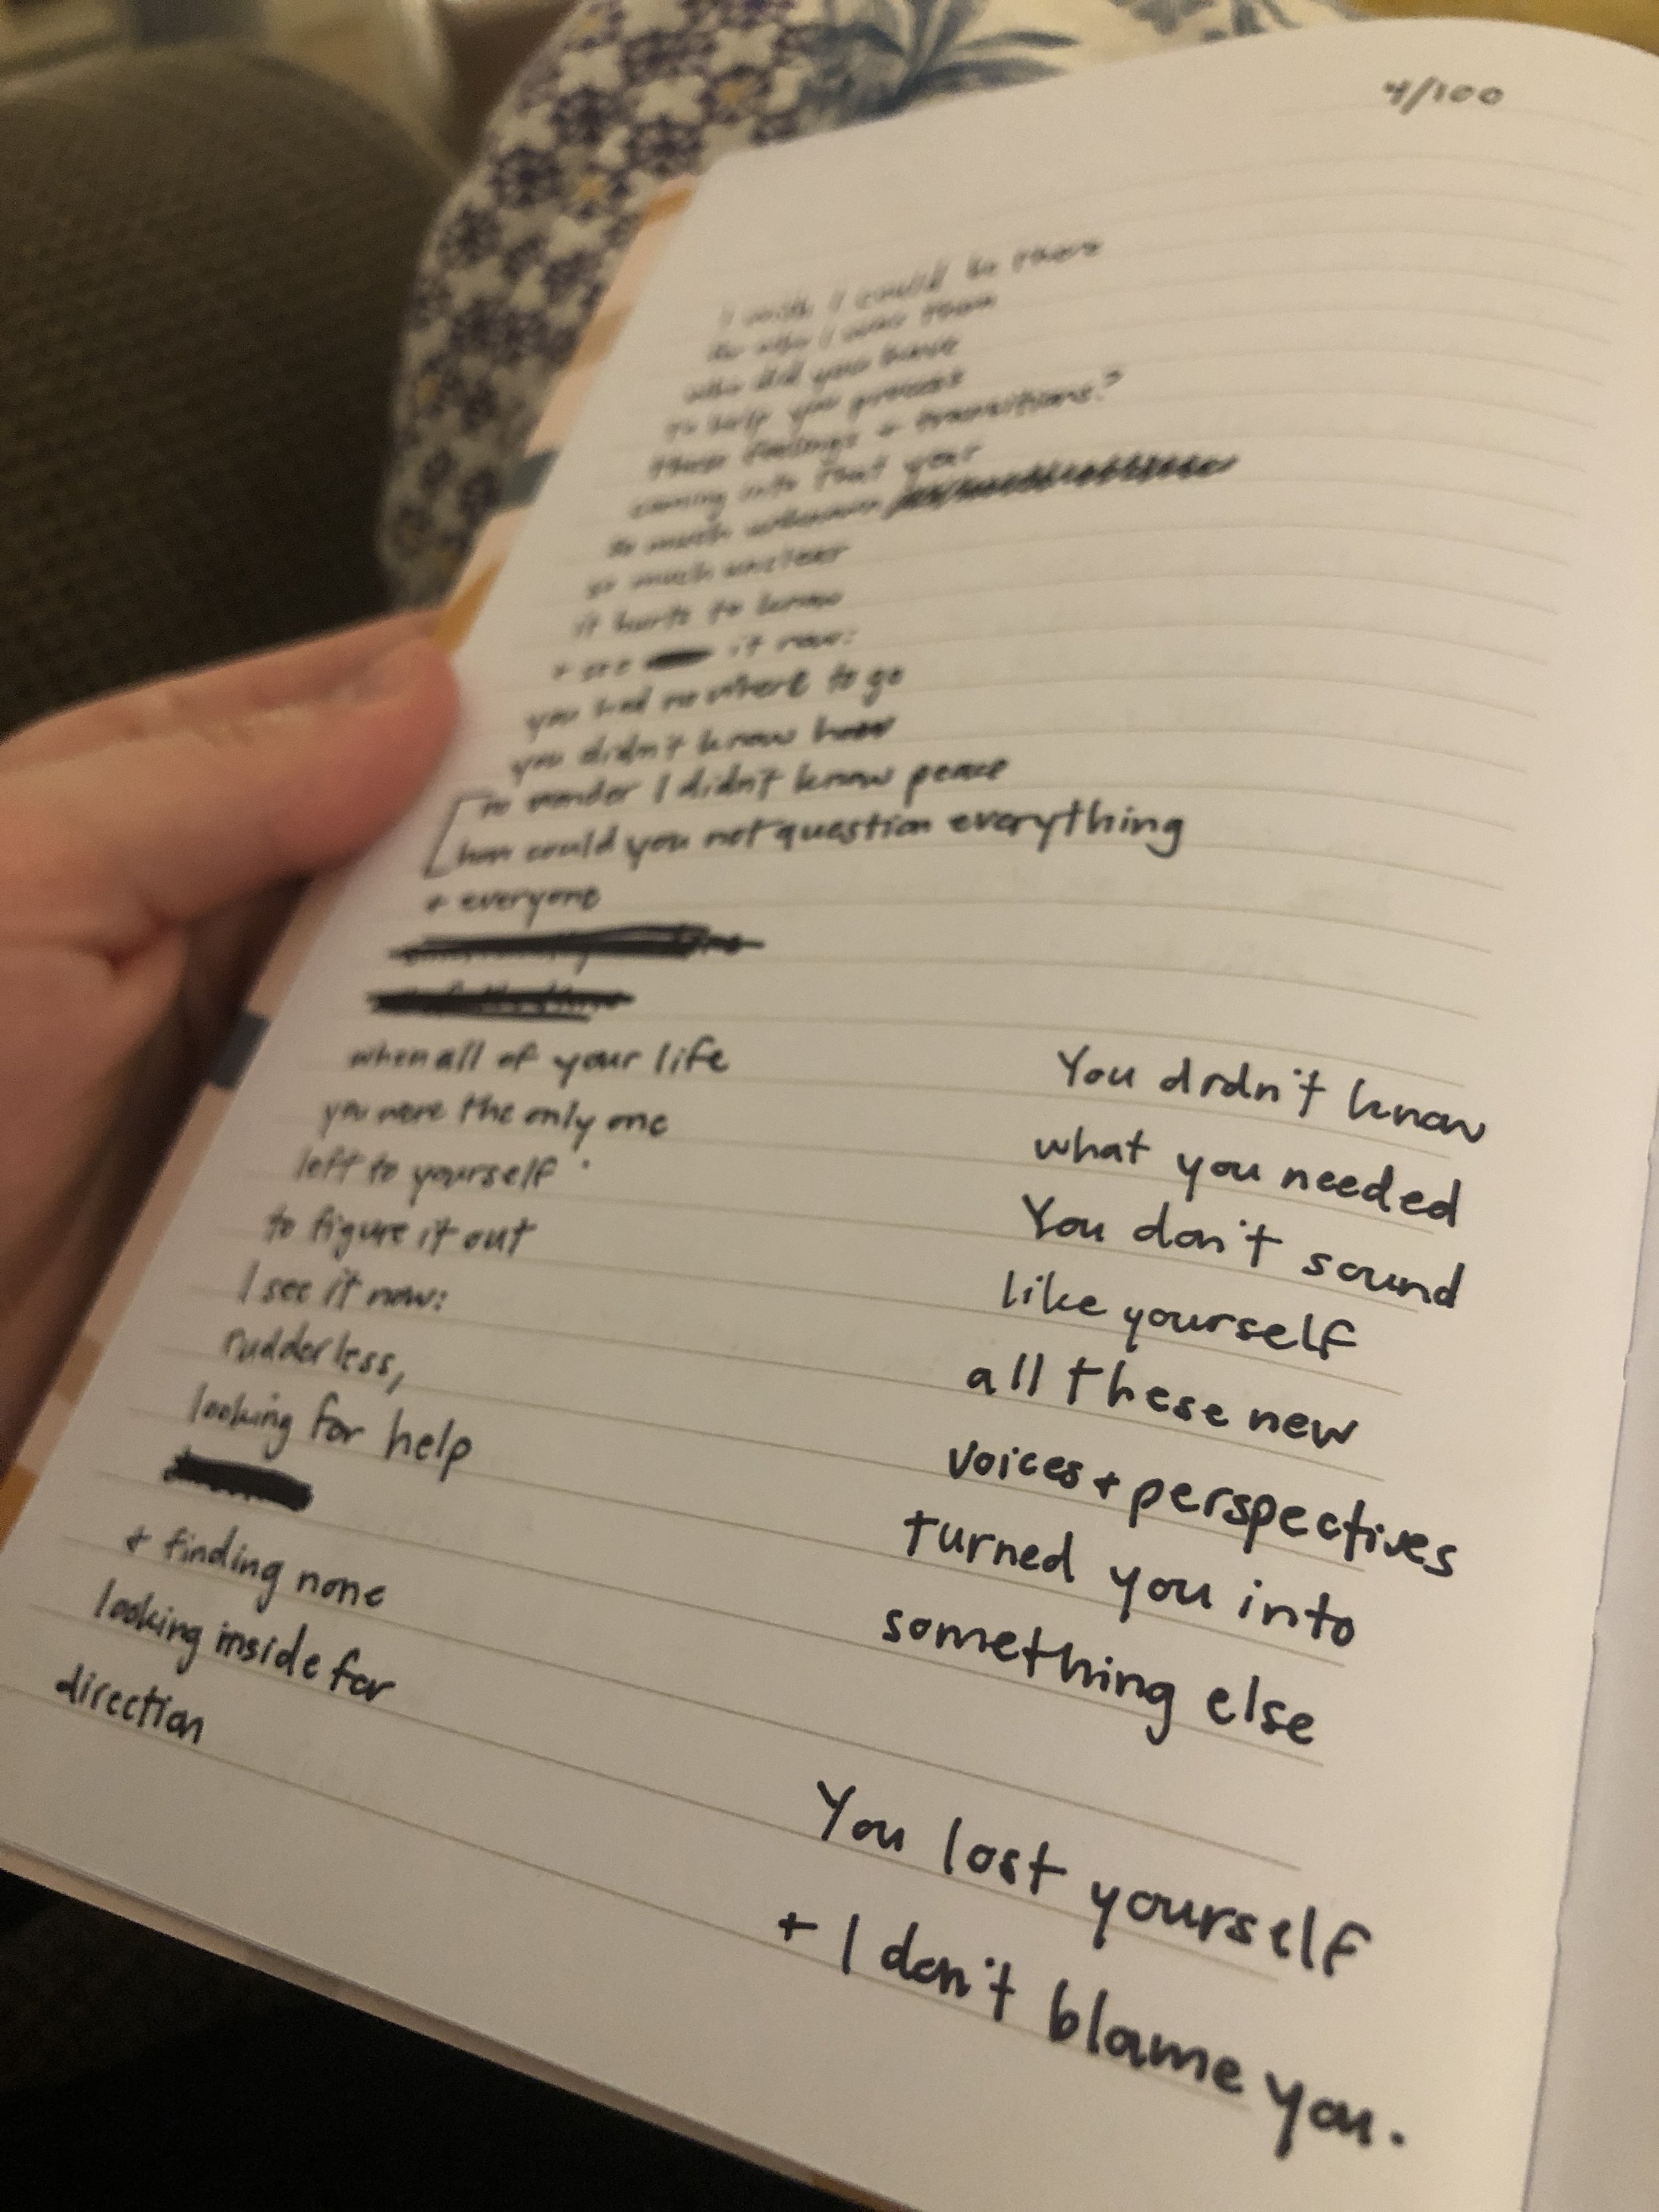 4/100
I wish I could be there
for who I was then
who did you have
to help you process
these feelings + transitions?
coming into that year
so much unknown
so much unclear
it hurts to know
+ see it now:
you had nowhere to go
you didn't know how
no wonder I didn't know peace
how could you not question everything
+ everyone
when all of your life
you were the only one
left to yourself
to figure it out
I see it now:
rudderless,
looking for help
+ finding none
looking inside for
direction
You didn't know
what you needed
You don't sound
like yourself
all these new
voices + perspectives
turned you into
something else
You lost yourself
+ I don't blame you.